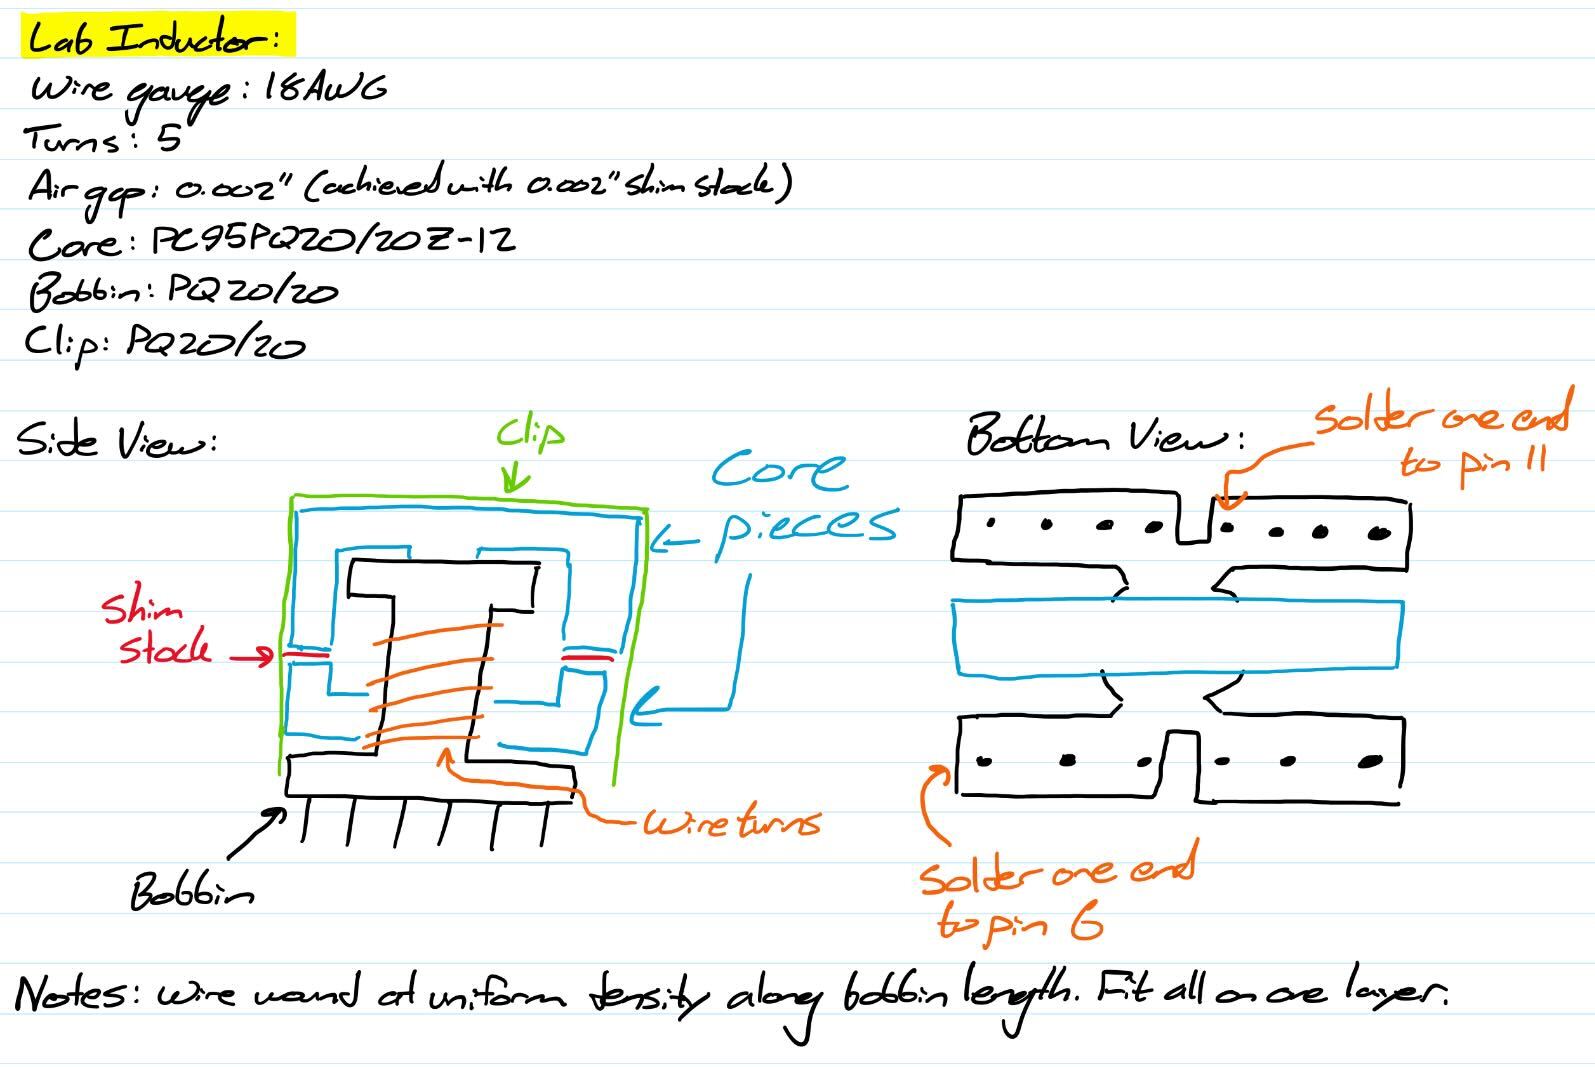 Lab Inductor:
Wire gauge: 18AWG
Turns: 5
Air gap: 0.002" (achieved with 0.002" shim stock)
Core: PC95PQ20/20Z-12
Bobbin: PQ20/20
Clip: PQ20/20
Side View:
Clip
Core
pieces
Shim
stock
Wire turns
Bobbin
Bottom View:
Solder one end
to pin 11
Solder one end
to pin 6
Notes: Wire wound at uniform density along bobbin length. Fit all on one layer.